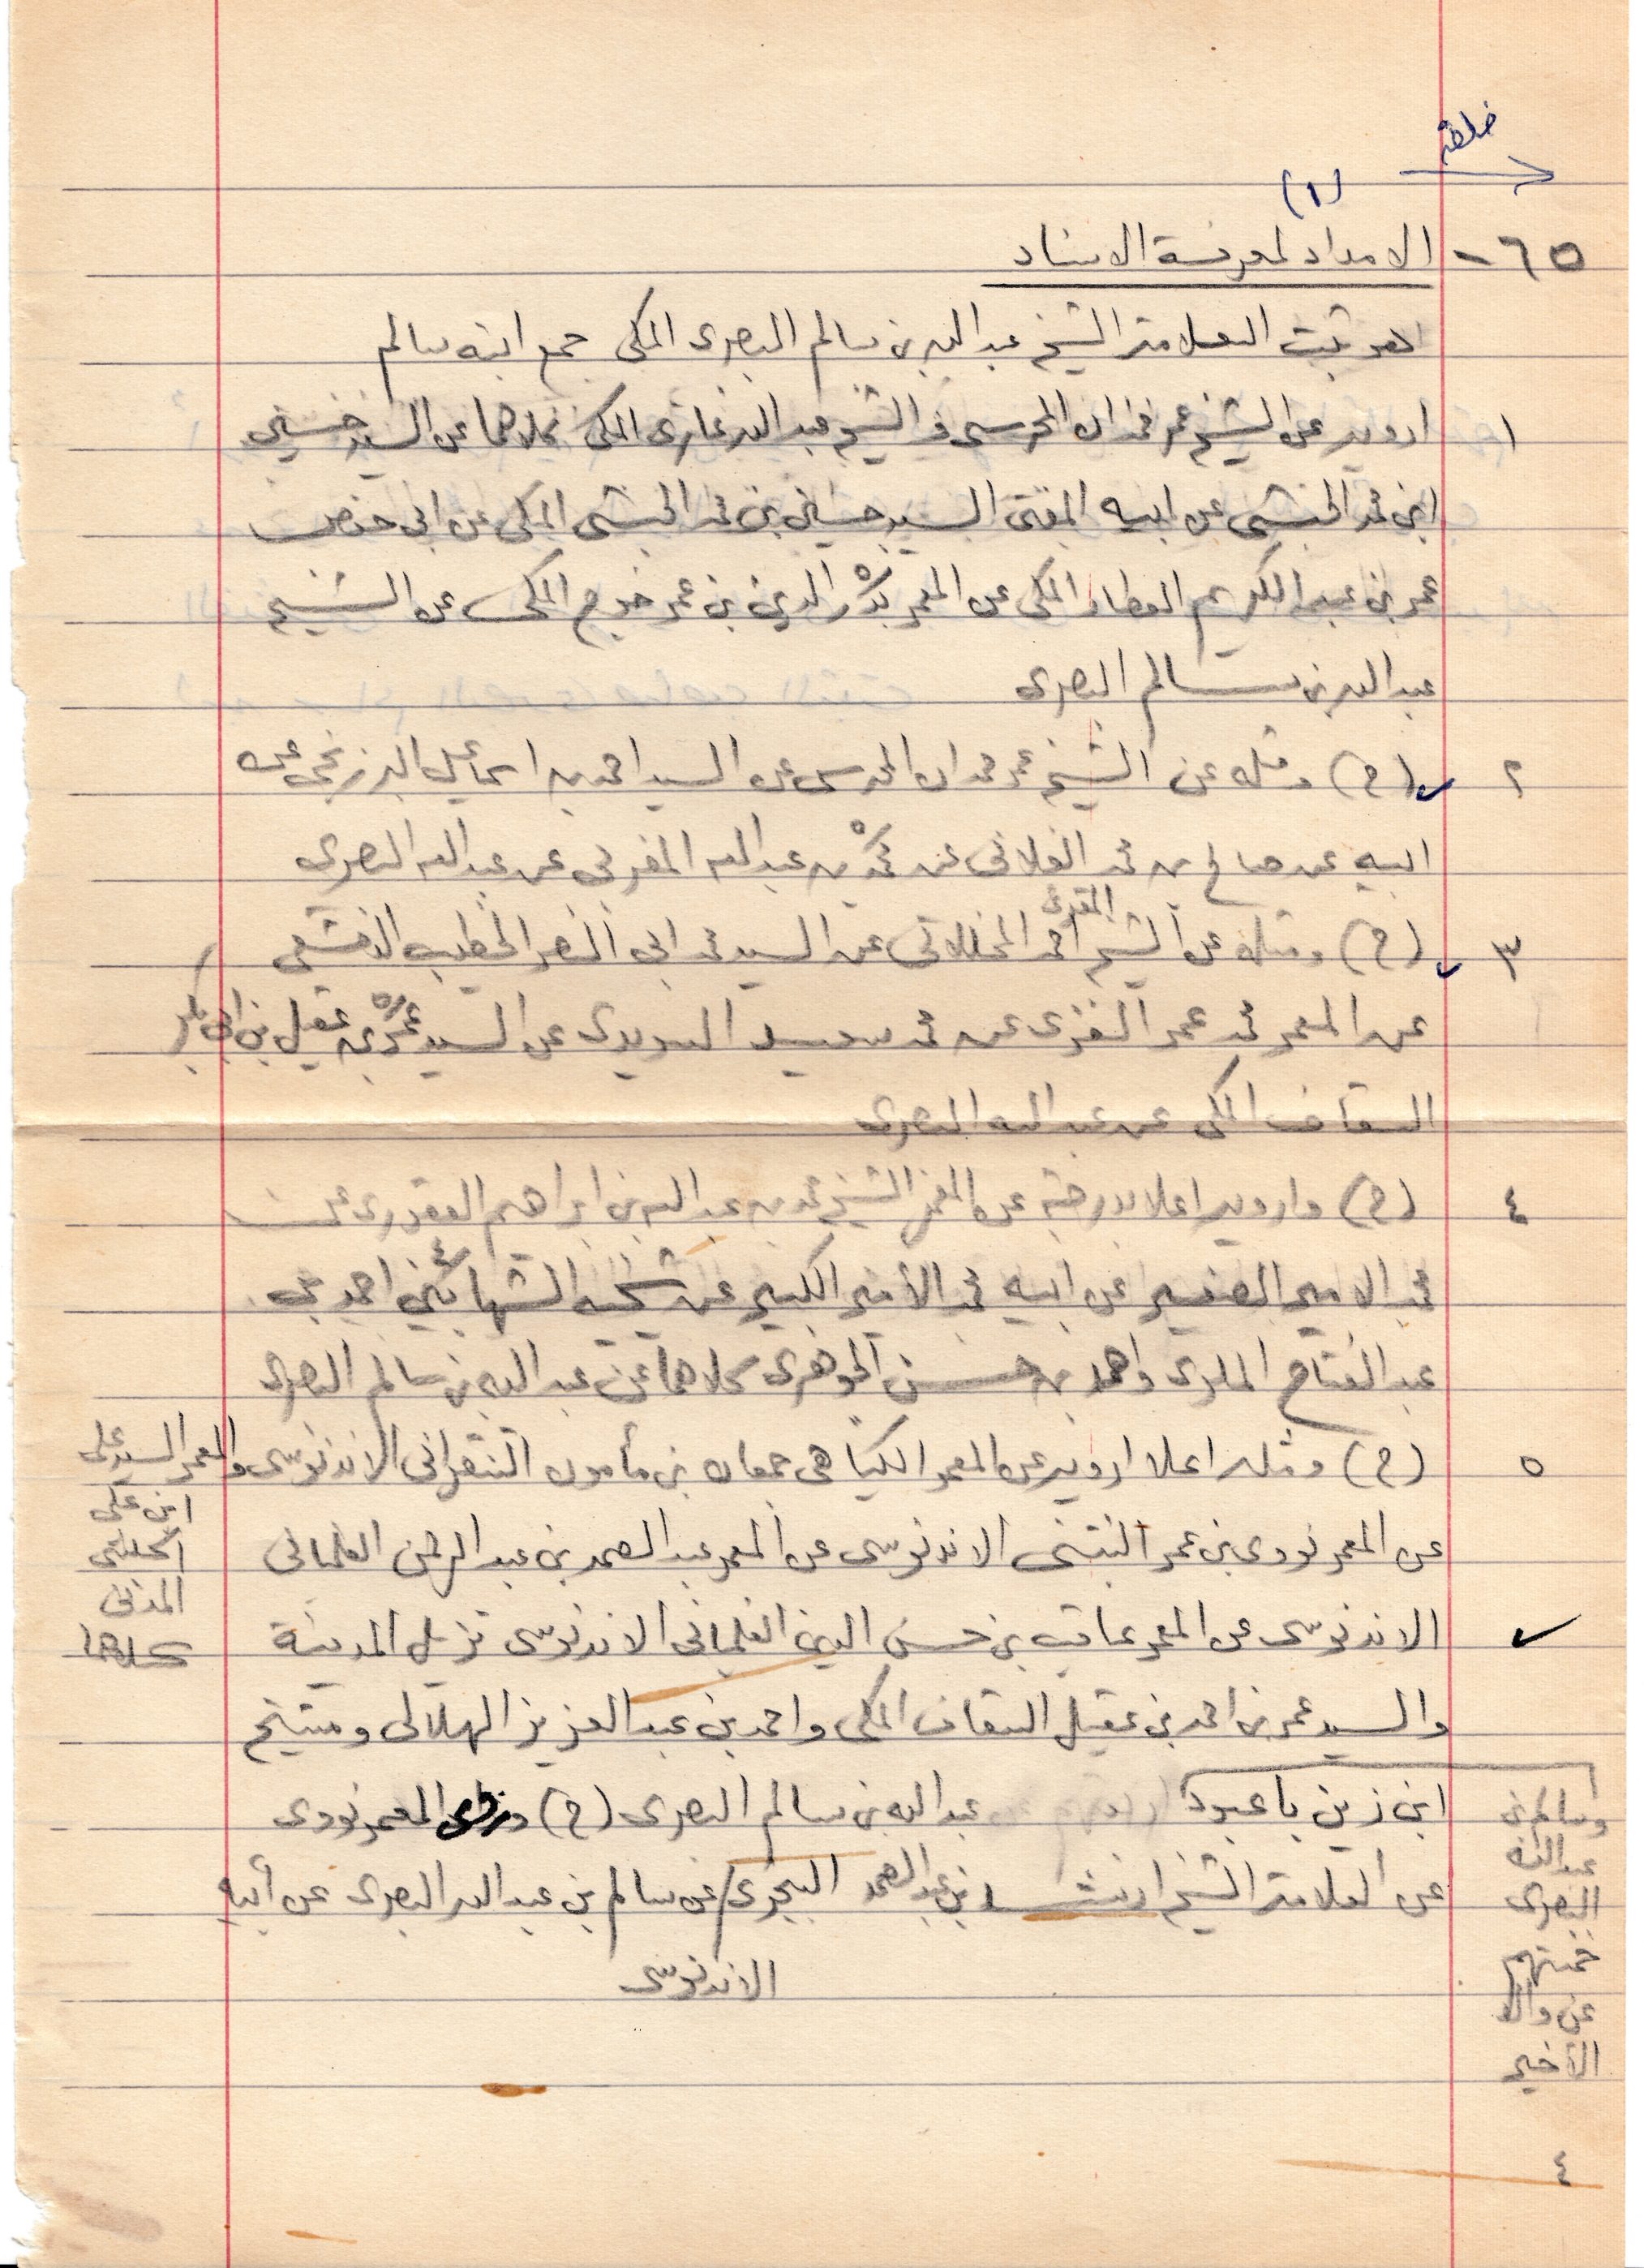 خلفه
(١)
٦٥ - الامداد لمعرفة الاسناد
لهو ثبت العلامة الشيخ عبد الله بن سالم البصرى المكى جمع ابنه سالم
١ ارويه عن الشيخ عمر حمدان المحرسى و الشيخ عبد الله غازى المكى كلاهما عن السيد حسين
ابن محمد الحبشى عن ابيه المفتى السيد حسين بن محمد الحبشى المكى عن ابى حفص
عمر بن عبد الكريم العطار المكى عن المعمر بدر الدين بن عمر خوج المكى عن الشيخ
عبد الله بن سالم البصرى
٢ (ح) ومثله عن الشيخ عمر حمدان المحرسى عن السيد احمد بن اسماعيل البرزنجى عن
ابيه عن صالح بن محمد الفلانى عن محمد بن عبد الله المغربي عن عبد الله البصرى
٣ (ح) ومثله عن الشيخ المقرئ احمد المخللاتى عن السيد محمد ابى النصر الخطيب الدمشقى
عن المعمر محمد عمر الغزى عن محمد سعيد السويدى عن السيد عمر بن عقيل بن ابى بكر
السقاف المكى عن عبد الله البصرى
٤ (ح) وارويه اعلا بدرجة عن المعمر الشيخ محمد بن عبد الله بن ابراهيم العقورى عن
محمد الامير الصغير عن ابيه محمد الأمير الكبير عن شيخيه الشهابين احمد بن
عبد الفتاح الملوى واحمد بن حسن الجوهرى كلاهما عن عبد الله بن سالم البصرى
٥ (ح) ومثله اعلا ارويه عن المعمر الكياهى جمعان بن مأمون التنقرانى الاندنوسى والمعمر السيد على
ابن على
الحبشى
المدنى
كلاهما
عن المعمر نووى بن عمر البنتنى الاندنوسى عن المعمر عبد الصمد بن عبد الرحمن الفلمبانى
الاندنوسى عن المعمر عاقب بن حسن الدين الفلمبانى الاندنوسى نزيل المدينة
والسيد عمر بن احمد بن عقيل السقاف المكى واحمد بن عبد العزيز الهلالى ومشيخ
ابن زين باعبود
وسالم بن
عبد الله
البصرى
خمستهم
عن والد
الأخير
عبد الله بن سالم البصرى (ح) المعمر نووى
عن العلامة الشيخ ارشد بن عبد الصمد البنجرى عن سالم بن عبد الله البصرى عن أبيه
الاندنوسى
٤